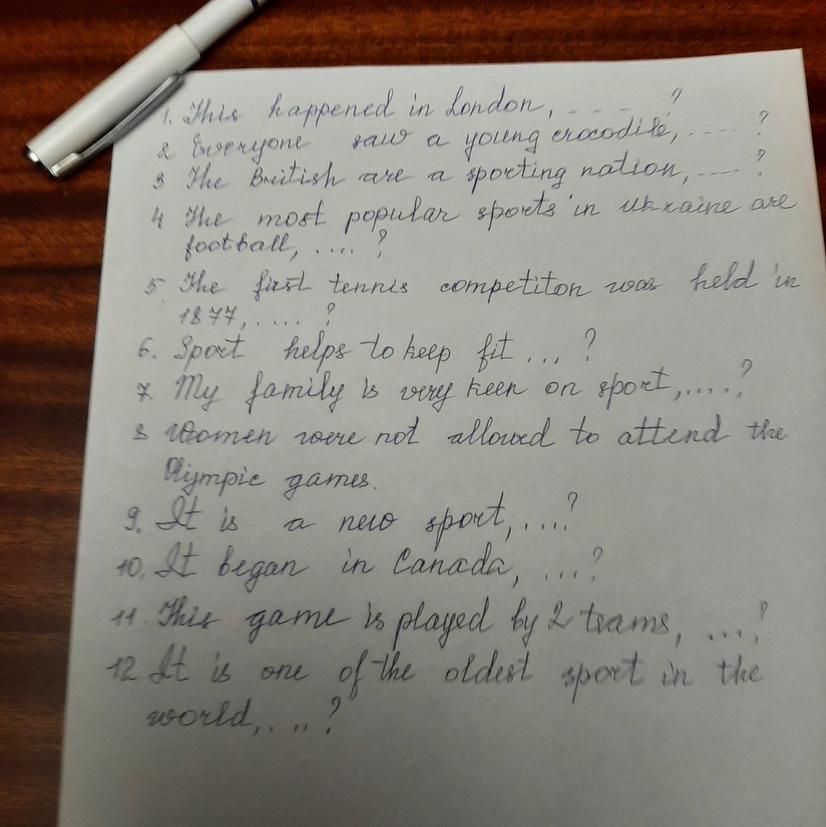 1. This happened in London, - - - - ?
2 Everyone saw a young crocodile, .... ?
3 The British are a sporting nation, .... ?
4 The most popular sports in Ukraine are
football, .... ?
5 The first tennis competiton was held in
1877, .... ?
6. Sport helps to keep fit ... ?
7. My family is very keen on sport, ....?
8 Women were not allowed to attend the
Olympic games.
9. It is a new sport, ....?
10. It began in Canada, ...?
11. This game is played by 2 teams, ...?
12 It is one of the oldest sport in the
world, ... ?